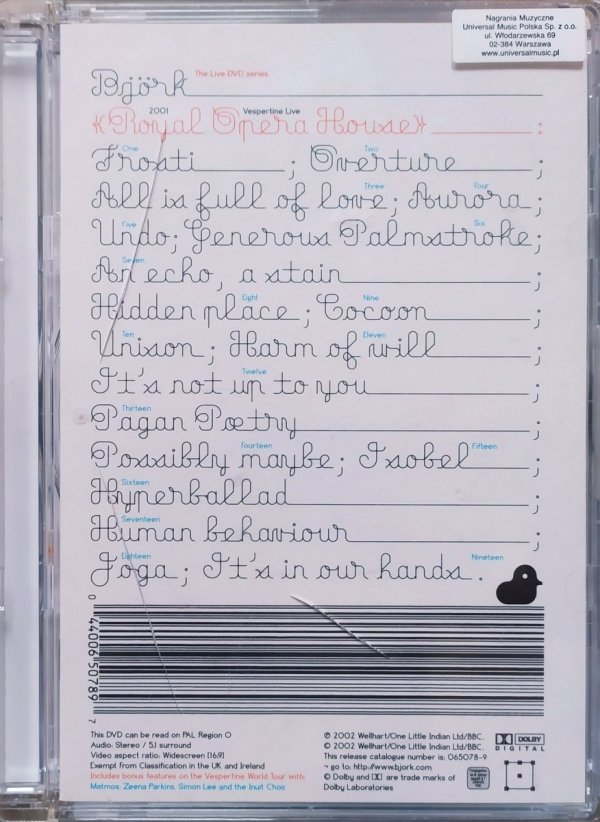 Nagrania Muzyczne
Universal Music Polska Sp. z o.o.
ul. Włodarzewska 69
02-384 Warszawa
www.universalmusic.pl
Björk The Live DVD series
2001 Vespertine Live
«Royal Opera House» :
One Two
Frosti ; Overture ;
Three Four
All is full of love; Aurora ;
Five Six
Undo; Generous Palmstroke;
Seven
An echo, a stain ;
Eight Nine
Hidden place ; Cocoon ;
Ten Eleven
Unison ; Harm of will ;
Twelve
It's not up to you ;
Thirteen
Pagan Poetry ;
Fourteen Fifteen
Possibly maybe; Isobel ;
Sixteen
Hyperballad ;
Seventeen
Human behaviour ;
Eighteen Nineteen
Joga ; It's in our hands .
0 44006 50789 7
This DVD can be read on PAL Region O
Audio: Stereo / 5.1 surround
Video aspect ratio: Widescreen [16:9]
Exempt from Classification in the UK and Ireland
Includes bonus features on the Vespertine World Tour with,
Matmos, Zeena Parkins, Simon Lee and the Inuit Choir.
℗ 2002 Wellhart/One Little Indian Ltd/BBC.
© 2002 Wellhart/One Little Indian Ltd/BBC.
This release catalogue number is: 065078-9
¬ go to: http://www.bjork.com
© Dolby and DD are trade marks of
Dolby Laboratories
DOLBY
DIGITAL